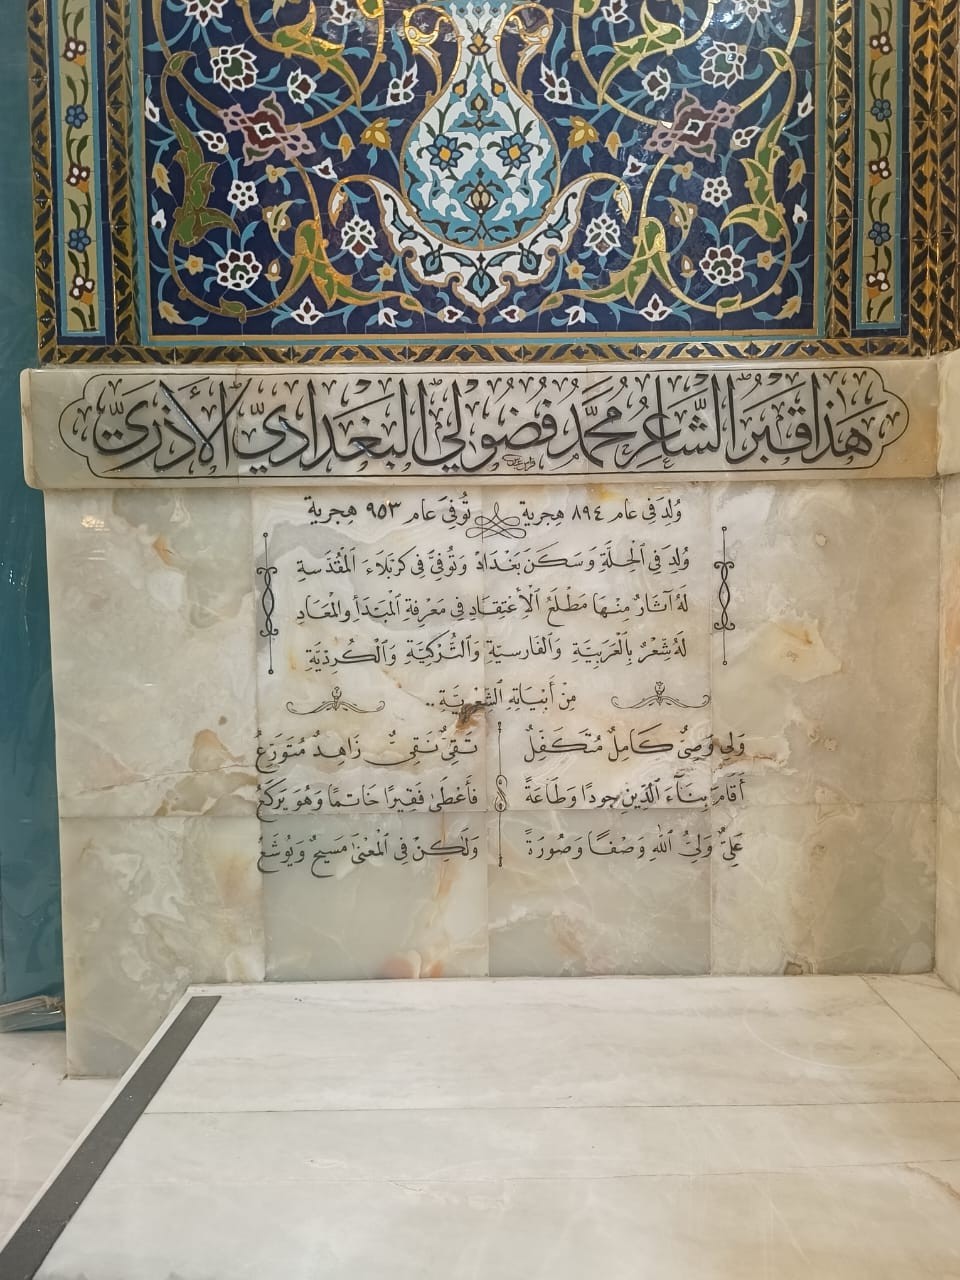 هَذَا قَبْرُ الشَّاعِرِ مُحَمَّد فُضُولِي البَغْدَادِيّ الأَذَرِيّ
وُلِدَ فِي عام ٨٩٤ هِجرية تُوفِيَ عام ٩٥٣ هِجرية
وُلِدَ فِي ٱلْحِلَّةِ وَسَكَنَ بَغْدَادْ وَتُوُفِيَّ فِي كَرْبَلَاءَ ٱلْمُقَدَّسةِ
لَهُ آثَارٌ مِنْهَا مَطْلَعُ ٱلْأِعْتِقَادِ فِي مَعْرِفَةِ ٱلْمَبْتَدَأِ وٱلْمَعَادِ
لَهُ شِعْرٌ بِٱلْعَرَبِيَّةِ وَٱلْفَارسيَّةِ وَٱلتُّرْكِيَّةِ وَٱلْكُردِيَّةِ
مِنْ أَبْيَاتِهِ ٱلشِّعْرِيَّةِ..
وَلِي وَصِيٌّ كَامِلٌ مُتَكَفِّلٌ تَقِيٌّ نَقِيٌّ زَاهِدٌ مُتَوَرِّعُ
أَقَامَ بِنَآءَ ٱلدِّينِ جودًا وَطَاعَةً فَأَعْطَىٰ فَقِيرًا خَاتمًا وَهُوَ يَرْكَعُ
عَلِيٌّ وَلِيُّ ٱللهِ وَصْفًا وَصُورَةً وَلَٰكِنْ فِي ٱلْمَعْنىٰ مَسِيحٌ وَيُوشَعُ